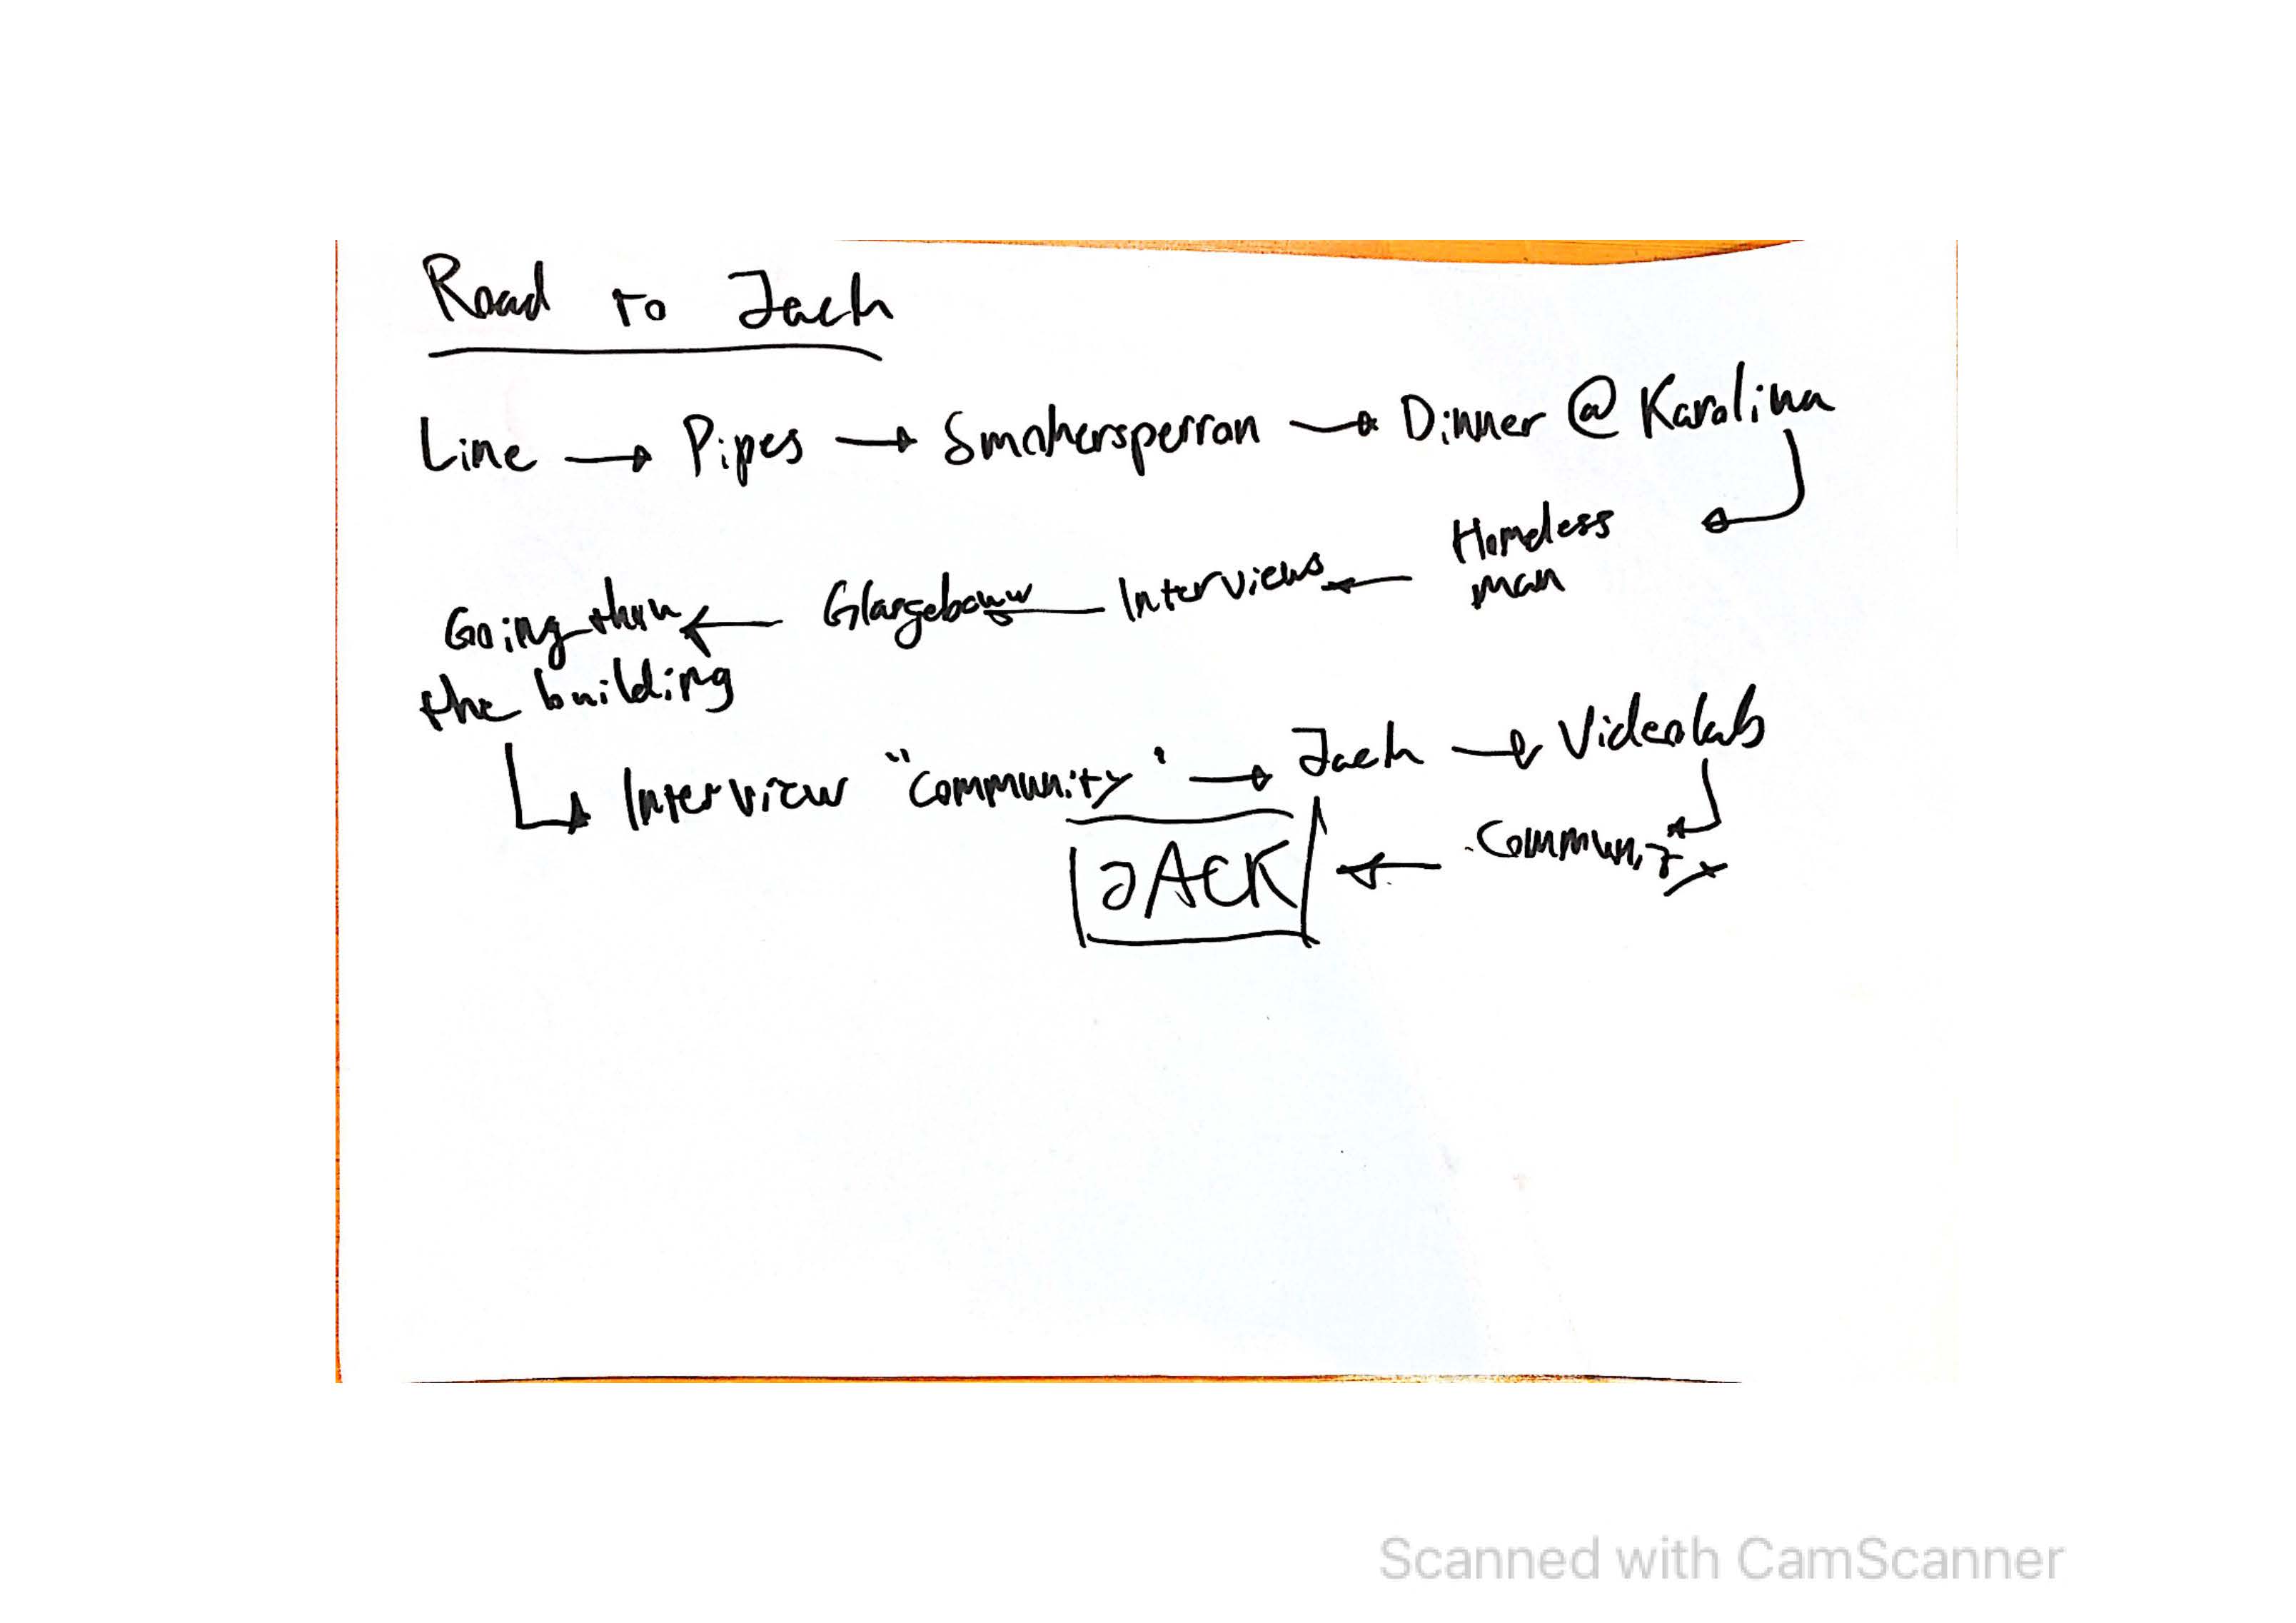 Road to Jack
Line → Pipes → Smokersperron → Dinner @ Karolina
Homeless
man
← Interviews ←
Glasgebouw ←
Going thru
the building
Interview "Community" → Jack → Videolab
Community
JACK ←
Scanned with CamScanner